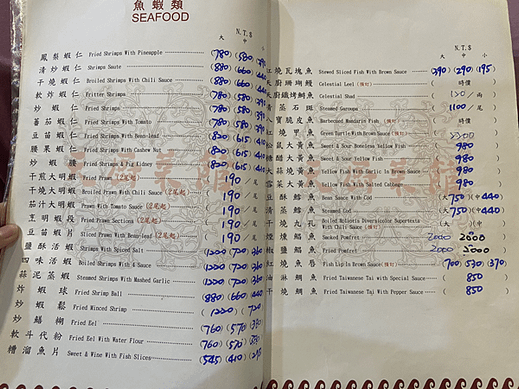 魚蝦類
SEAFOOD
N.T.$
大 中 小
鳳梨蝦仁 Fried Shrimps With Pineapple (780) (580) (390
清炒蝦仁 Shrimps Saute (780) (580) (390
干燒蝦仁 Broiled Shrimps With Chili Sauce (780) (580) (390
軟炸蝦仁 Fritter Shrimps (780) (580)
炒蝦仁 Fried Shrimps (780) (580)
蕃茄蝦仁 Fried Shrimps With Tomato (780) (580)
豆苗蝦仁 Fried Shrimps With Bean-leaf (820) (615) (410
腰果蝦仁 Fried Shrimps With Cashew Nut (820) (615) (410
炒蝦腰 Fried Shrimps & Pig Kidney (820) (615) (410
干煎大明蝦 Fried Prawn (2尾起) 190/尾
干燒大明蝦 Broiled Prawn With Chili Sauce (2尾起) 190/尾
茄汁大明蝦 Prawn With Tomato Sauce (2尾起) 190/尾
烹明蝦段 Fried Prawn Sections (2尾起) 190/尾
豆苗蝦 Sliced Prawn With Bean-leaf (2尾起) 190/尾
鹽酥活蝦 Shrimps With Spiced Salt
四味活蝦 Boiled Shrimps With 4 Sauce
蒜泥蒸蝦 Steamed Shrimps With Mashed Garlic
炸蝦球 Fried Shrimp Ball (880) (660) (440
炒蝦鬆 Fried Minced Shrimp
炒鱔糊 Fried Eel (760) (570) (380
軟斗代粉 Fried Eel With Water Flour (760) (570) (380
糟溜魚片 Sweet & Wine With Fish Slices (545) (410)
N.T.$
大 中 小
紅燒瓦塊魚 Stewed Sliced Fish With Brown Sauce (390) (290) (195)
Celestial Leel 時價
Celestial Shad 130/兩
蒸石斑 Steamed Garoupa 1100/尾
Barbecued Mandarin Fish 時價
燒甲魚 Green Turtle With Brown Sauce
松鼠大黃魚 Sweet & Sour Boneless Yellow Fish 980
糖醋大黃魚 Sweet & Sour Yellow Fish 980
蒜燒黃魚 Yellow Fish With Garlic In Brown Sauce 980
大黃魚 Yellow Fish With Salted Cabbage 980
豆酥鱈魚 Bean Sauce With Cod (大750) (中440)
清蒸鱈魚 Steamed Cod (大750) (中440)
干燒九孔 Boiled Holiotis Diversicolor Supertexta With Chili Sauce 時價
煙鯧魚 Smoked Pomfret 2000 2000
鯧魚 Fried Pomfret 2000 2000
燒魚唇 Fish Lip In Brown Sauce (700) (530) (370)
油淋鯛魚 Fried Taiwanese Tai with Special Sauce 850
干燒鯛魚 Fried Taiwanese Tai With Pepper Sauce 850